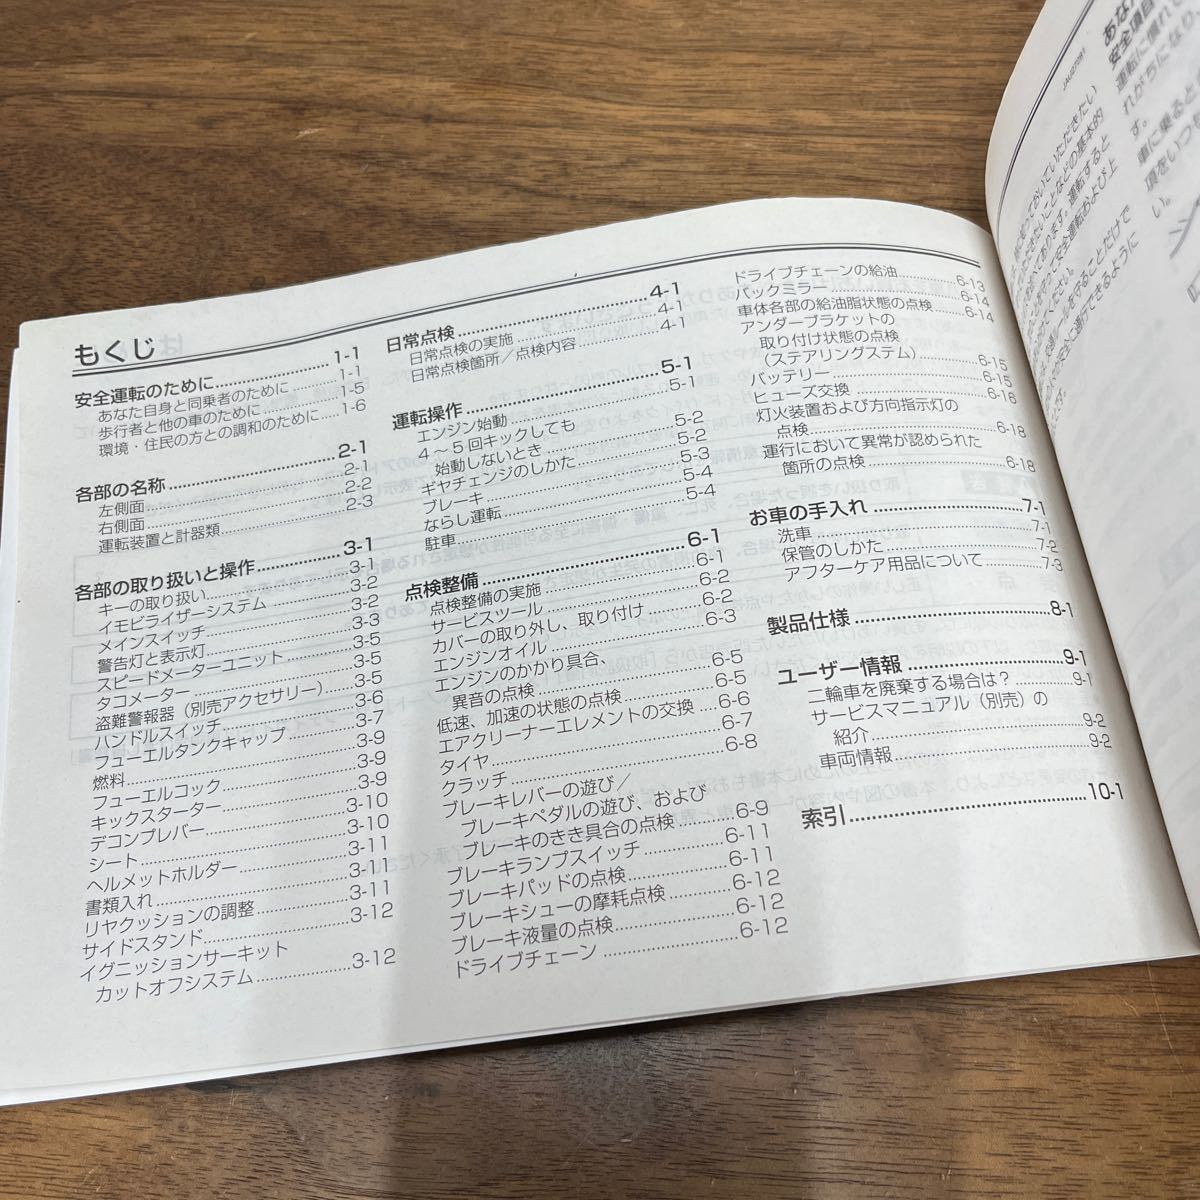 もくじ
安全運転のために 1-1
あなた自身と同乗者のために 1-1
歩行者と他の車のために 1-5
環境・住民の方との調和のために 1-6
各部の名称 2-1
左側面 2-1
右側面 2-2
運転装置と計器類 2-3
各部の取り扱いと操作 3-1
キーの取り扱い 3-1
イモビライザーシステム 3-2
メインスイッチ 3-2
警告灯と表示灯 3-3
スピードメーターユニット 3-5
タコメーター 3-5
盗難警報器（別売アクセサリー） 3-5
ハンドルスイッチ 3-6
フューエルタンクキャップ 3-7
燃料 3-9
フューエルコック 3-9
キックスターター 3-9
デコンプレバー 3-10
シート 3-10
ヘルメットホルダー 3-11
書類入れ 3-11
リヤクッションの調整 3-11
サイドスタンド 3-12
イグニッションサーキット
カットオフシステム 3-12
日常点検 4-1
日常点検の実施 4-1
日常点検箇所／点検内容 4-1
運転操作 5-1
エンジン始動 5-1
4～5回キックしても
始動しないとき 5-2
ギヤチェンジのしかた 5-2
ブレーキ 5-3
ならし運転 5-4
駐車 5-4
点検整備 6-1
点検整備の実施 6-1
サービスツール 6-2
カバーの取り外し、取り付け 6-2
エンジンオイル 6-3
エンジンのかかり具合、
異音の点検 6-5
低速、加速の状態の点検 6-5
エアクリーナーエレメントの交換 6-6
タイヤ 6-7
クラッチ 6-8
ブレーキレバーの遊び／
ブレーキペダルの遊び、および
ブレーキのきき具合の点検 6-9
ブレーキランプスイッチ 6-11
ブレーキパッドの点検 6-11
ブレーキシューの摩耗点検 6-12
ブレーキ液量の点検 6-12
ドライブチェーン 6-12
ドライブチェーンの給油 6-13
バックミラー 6-14
車体各部の給油脂状態の点検 6-14
アンダーブラケットの
取り付け状態の点検
（ステアリングステム） 6-15
バッテリー 6-15
ヒューズ交換 6-16
灯火装置および方向指示灯の
点検 6-18
運行において異常が認められた
箇所の点検 6-18
お車の手入れ 7-1
洗車 7-1
保管のしかた 7-2
アフターケア用品について 7-3
製品仕様 8-1
ユーザー情報 9-1
二輪車を廃棄する場合は？ 9-1
サービスマニュアル（別売）の
紹介 9-2
車両情報 9-2
索引 10-1